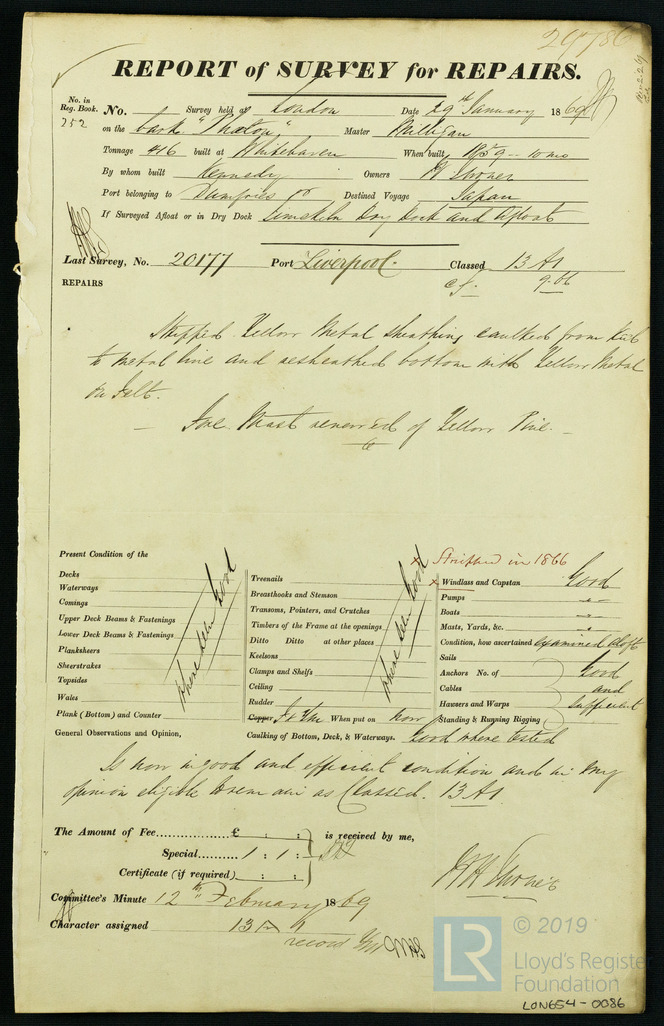 29786
REPORT of SURVEY for REPAIRS.
No. in Reg. Book. 252
No. Survey held at London Date 29th January 1869
on the bark "Phaeton" Master Milligan
Tonnage 416 built at Whitehaven When built 1859 - 10 mo
By whom built Kennedy Owners
Port belonging to Dumfries Destined Voyage Japan
If Surveyed Afloat or in Dry Dock Limekiln Dry Dock and afloat
Last Survey, No. 20177 Port Liverpool. Classed 13 A1
REPAIRS c.f. 9.66
Stripped Yellow Metal Sheathing caulked from Keel
to metal line and resheathed bottom with Yellow Metal
on felt.
— Fore Mast renewed of Yellow Pine. —
Present Condition of the
Decks
Waterways
Comings
Upper Deck Beams & Fastenings
Lower Deck Beams & Fastenings
Planksheers
Sheerstrakes
Topsides
Wales
Plank (Bottom) and Counter
where seen Good
Treenails
Breasthooks and Stemson
Transoms, Pointers, and Crutches
Timbers of the Frame at the openings
Ditto Ditto at other places
Keelsons
Clamps and Shelfs
Ceiling
Rudder
Copper When put on now
where seen Good
x Stripped in 1866
x Windlass and Capstan Good
Pumps
Boats
Masts, Yards, &c.
Condition, how ascertained examined aloft
Sails
Anchors No. of
Cables
Hawsers and Warps
Standing & Running Rigging
Good
and
Sufficient
General Observations and Opinion, Caulking of Bottom, Deck, & Waterways. Good where tested
Is now in good and efficient condition and in my
opinion eligible to remain as Classed. 13 A1
The Amount of Fee £ : : is received by me,
Special 1 : 1 :
Certificate (if required) : :
Committee's Minute 12th February 1869
Character assigned 13 A1
record
© 2019
LR
Lloyd's Register
Foundation
LON654-0086